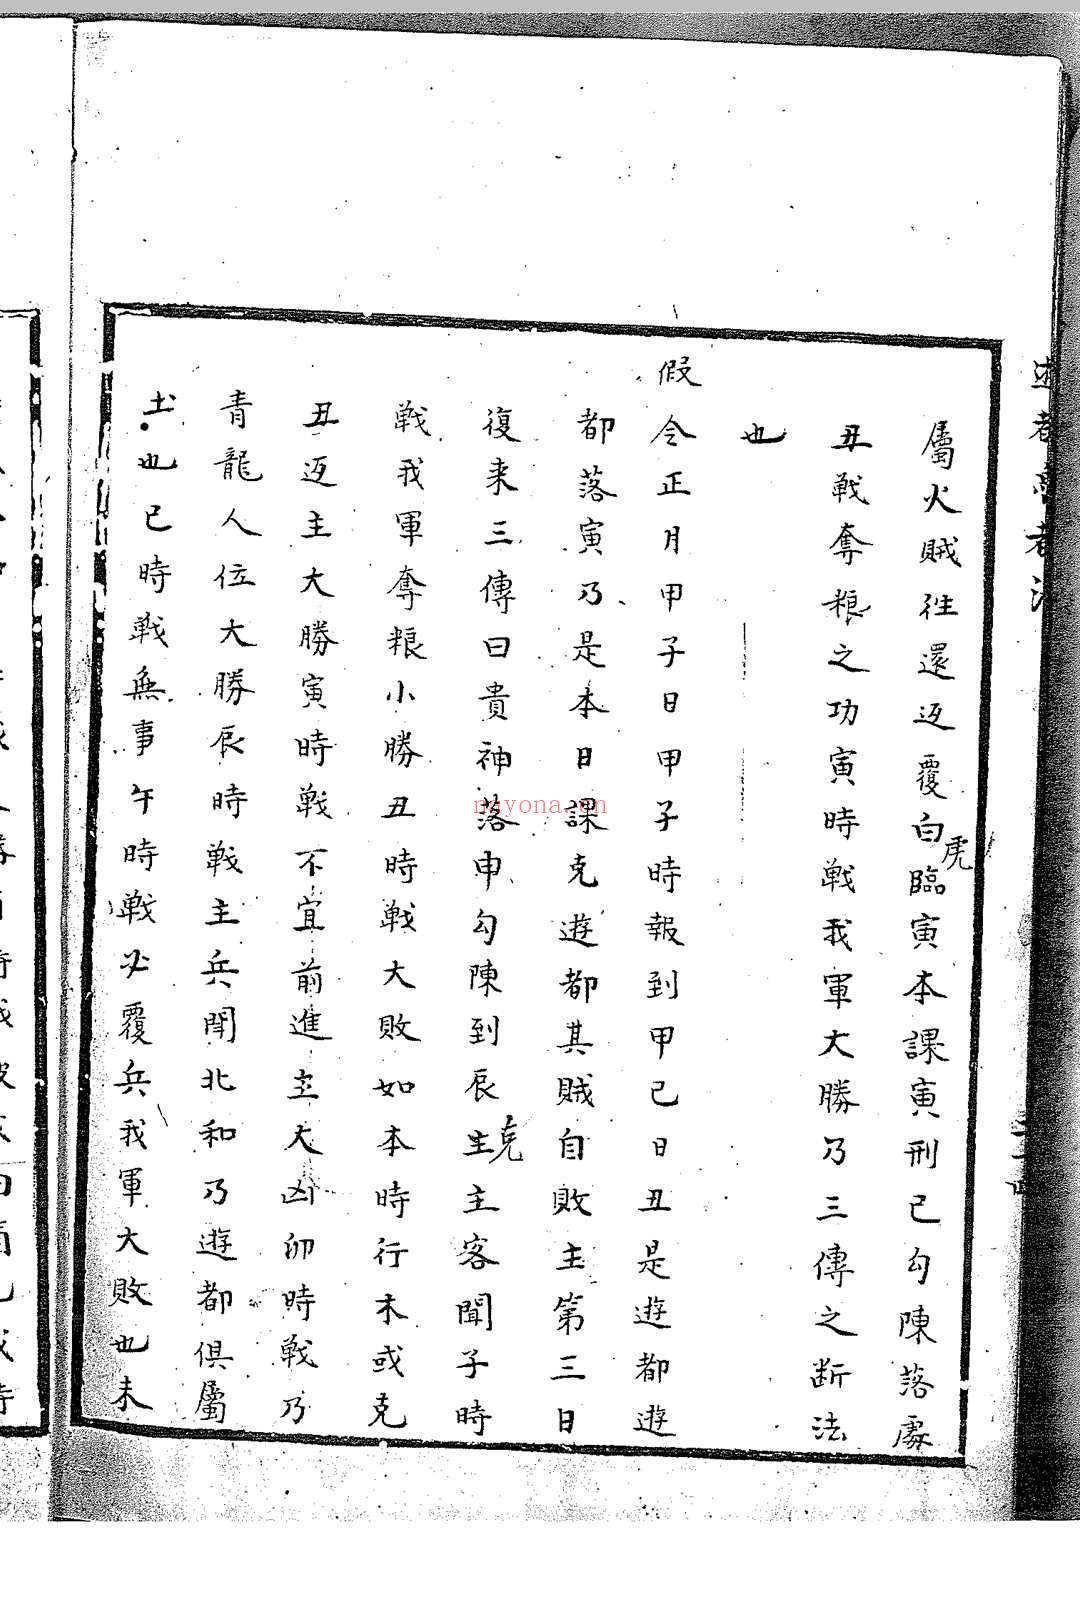 屬火賊往還返覆白虎臨寅本課寅刑己勾陳落處
丑戰奪粮之功寅時戰我軍大勝乃三傳之断法
也
假令正月甲子日甲子時報到甲己日丑是遊都遊
都落寅乃是本日課克遊都其賊自敗主第三日
復来三傳曰貴神落申勾陳到辰生克主客聞子時
戰我軍奪粮小勝丑時戰大敗如本時行木或克
丑返主大勝寅時戰不宜前進主大凶卯時戰乃
青龍人位大勝辰時戰主兵聞北和乃遊都俱屬
土也巳時戰無事午時戰必覆兵我軍大敗也未
nayona.cn